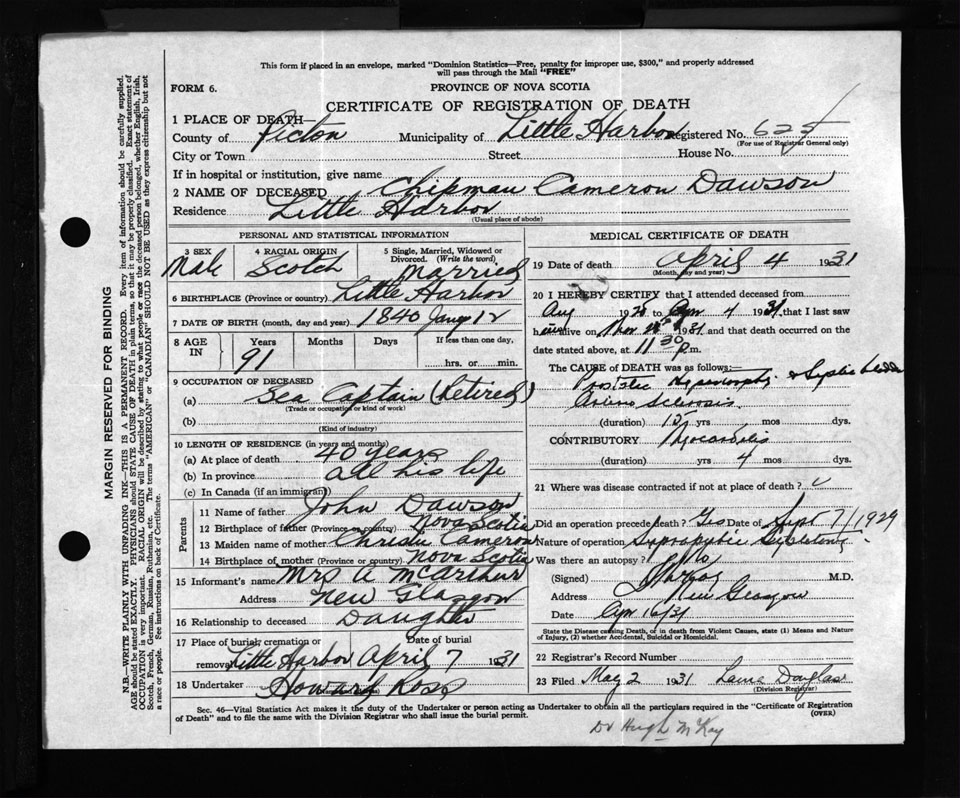 This form if placed in an envelope, marked "Dominion Statistics—Free, penalty for improper use, $300," and properly addressed
will pass through the Mail "FREE"
FORM 6.
PROVINCE OF NOVA SCOTIA
CERTIFICATE OF REGISTRATION OF DEATH
1 PLACE OF DEATH—
County of Pictou Municipality of Little Harbor Registered No. 625
(For use of Registrar General only)
City or Town Street House No.
If in hospital or institution, give name
2 NAME OF DECEASED Chipman Cameron Dawson
Residence Little Harbor
(Usual place of abode)
PERSONAL AND STATISTICAL INFORMATION
3 SEX Male
4 RACIAL ORIGIN Scotch
5 Single, Married, Widowed or
Divorced. (Write the word)
Married
6 BIRTHPLACE (Province or country) Little Harbor
7 DATE OF BIRTH (month, day and year) 1840 Jany 12
8 AGE IN Years Months Days If less than one day,
91 hrs. or min.
9 OCCUPATION OF DECEASED
(a) Sea Captain (Retired)
(Trade or occupation or kind of work)
(b)
(Kind of industry)
10 LENGTH OF RESIDENCE (in years and months)
(a) At place of death 40 years
(b) In province all his life
(c) In Canada (if an immigrant)
Parents
11 Name of father John Dawson
12 Birthplace of father (Province or country) Nova Scotia
13 Maiden name of mother Christie Cameron
14 Birthplace of mother (Province or country) Nova Scotia
15 Informant's name Mrs A McArthur
Address New Glasgow
16 Relationship to deceased Daughter
17 Place of burial, cremation or Date of burial
removal Little Harbor April 7 1931
18 Undertaker Howard Ross
MEDICAL CERTIFICATE OF DEATH
19 Date of death April 4 1931
(Month, day and year)
20 I HEREBY CERTIFY that I attended deceased from
Aug 1928 to Apr 4 1931 that I last saw
him alive on 1931 and that death occurred on
date stated above, at 11 30 p.m.
The CAUSE OF DEATH was as follows:—
Prostatic Hypertrophy &
Arterio Sclerosis
(duration) 15 yrs mos dys.
CONTRIBUTORY Myocarditis
(duration) yrs 4 mos dys.
21 Where was disease contracted if not at place of death?
Did an operation precede death? Yes Date of Sept 7/1929
Nature of operation Suprapubic
Was there an autopsy? No
(Signed) M.D.
Address New Glasgow
Date Apr 16/31
State the Disease causing Death, or in death from Violent Causes, state (1) Means and Nature
of Injury, (2) whether Accidental, Suicidal or Homicidal.
22 Registrar's Record Number
23 Filed May 2 1931 Douglas
(Division Registrar)
Sec. 46—Vital Statistics Act makes it the duty of the Undertaker or person acting as Undertaker to obtain all the particulars required in the "Certificate of Registration
of Death" and to file the same with the Division Registrar who shall issue the burial permit.
(OVER)
Dr Hugh McKay
MARGIN RESERVED FOR BINDING
N.B.—WRITE PLAINLY WITH UNFADING INK—THIS IS A PERMANENT RECORD. Every item of information should be carefully supplied.
AGE should be stated EXACTLY. PHYSICIANS should STATE CAUSE OF DEATH in plain terms, so that it may be properly classified. Exact statement of
OCCUPATION is very important. RACIAL ORIGIN will be described by stating to what people or race the deceased person belonged, whether English, Irish,
Scotch, French, German, Russian, Ruthenian, etc. The terms "AMERICAN" or "CANADIAN" SHOULD NOT BE USED as they express citizenship but not
a race or people. See instructions on back of Certificate.